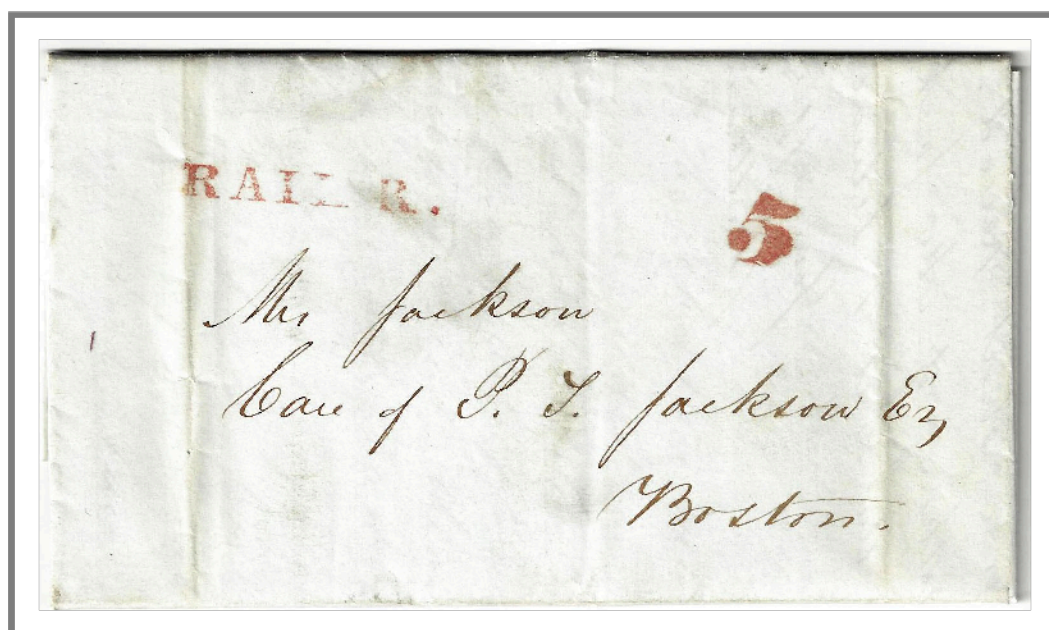 RAIL R.
5
Mrs Jackson
Care of P. T. Jackson Esq
Boston.